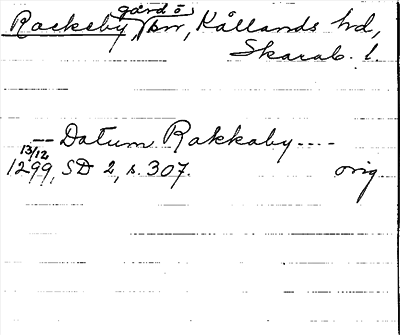 Rackeby, gård o sn, Kållands hd,
Skarab. l.
-- Datum Rakkaby ----
13/12
1299, SD 2, s. 307. orig